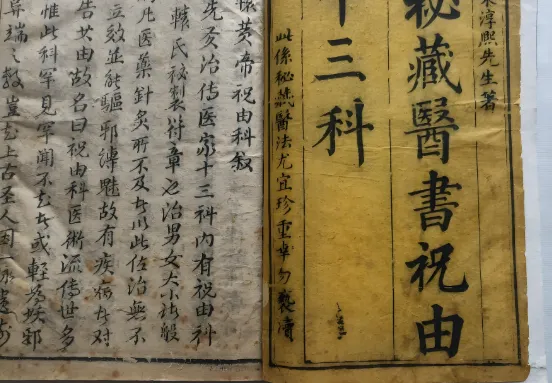 淳熙先生著
秘藏醫書祝由
十三科
此係秘醫法尤宜珍重幸勿褻瀆
黃帝祝由科叙
先灸治傳医家十三科內有祝由科
轅氏秘製符章也治男女大小诸般
凡医藥針灸所不及者以此佐治無不
立效並能驅邪縛魅故有疾病者对
告其由故名曰祝由科医術流傳世多
惟此科罕見罕聞不知者或輕为妖邪
異端之教豈知上古圣人因一